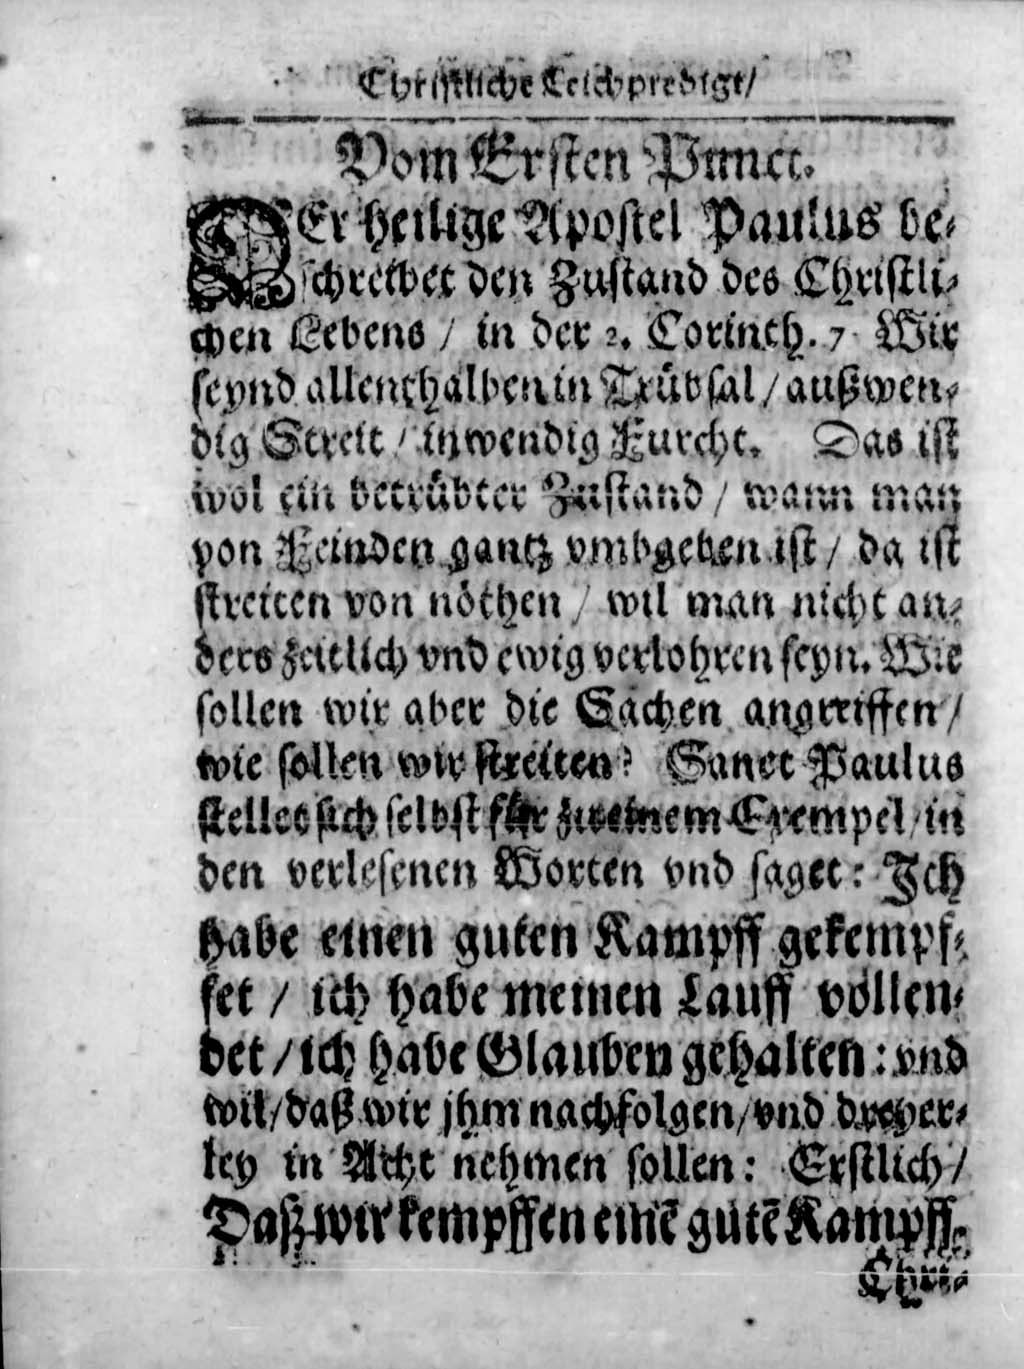 Christliche Leichpredigt/
Vom Ersten Punct.
DEr heilige Apostel Paulus be-
schreibet den Zustand des Christli-
chen Lebens / in der 2. Corinth. 7. Wir
seynd allenthalben in Trübsal / außwen-
dig Streit / inwendig Furcht. Das ist
wol ein betrübter Zustand / wann man
von Feinden gantz vmbgeben ist / da ist
streiten von nöthen / wil man nicht an-
ders zeitlich vnd ewig verlohren seyn. Wie
sollen wir aber die Sachen angreiffen /
wie sollen wir streiten? Sanct Paulus
stellet sich selbst für zu einem Exempel / in
den verlesenen Worten vnd saget: Jch
habe einen guten Kampff gekempf-
fet / ich habe meinen Lauff vollen-
det / ich habe Glauben gehalten: vnd
wil / daß wir jhm nachfolgen / vnd dreyer-
ley in Acht nehmen sollen: Erstlich /
Daß wir kempffen einē gutē Kampff.
Chri-